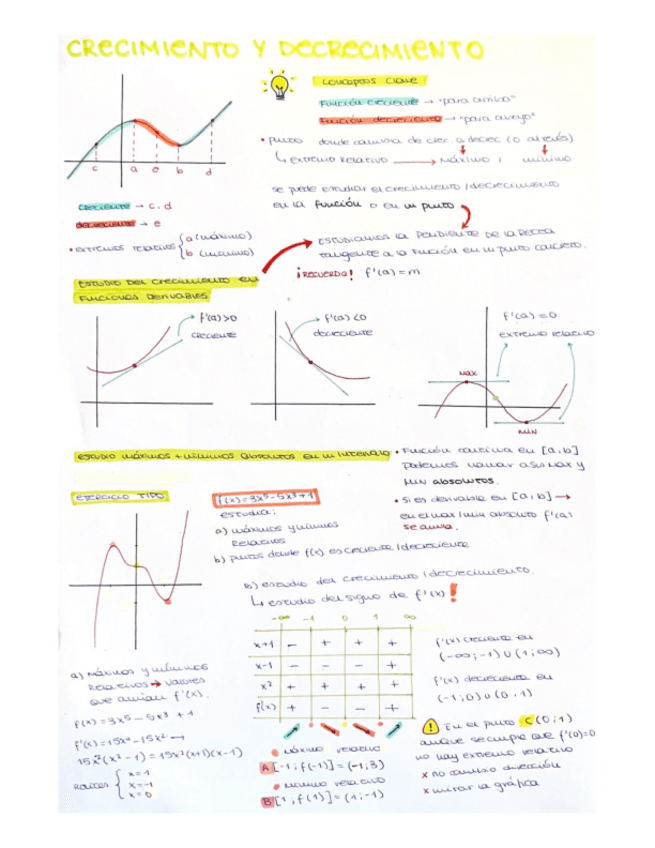 CRECIMIENTO Y DECRECIMIENTO
CONCEPTOS CLAVE
FUNCIÓN CRECIENTE → "para arriba"
FUNCIÓN DECRECIENTE → "para abajo"
• punto donde cambia de crec. a decrec (o al revés)
↳ EXTREMO RELATIVO → MÁXIMO / mínimo
c a e b d
se puede estudiar el crecimiento / decrecimiento
en la función o en un punto
CRECIENTE → c, d
DECRECIENTE → e
• EXTREMOS RELATIVOS { a (máximo)
b (mínimo)
ESTUDIAMOS LA PENDIENTE DE LA RECTA
tangente a la función en un punto concreto.
¡RECUERDA! f'(a) = m
ESTUDIO DEL CRECIMIENTO EN
FUNCIONES DERIVABLES
f'(a)>0
CRECIENTE
f'(a)<0
decreciente
f'(a)=0
extremo relativo
MAX
MIN
ESTUDIO MÁXIMOS + MÍNIMOS ABSOLUTOS EN UN INTERVALO
• Función continua en [a,b]
podemos hallar
MIN ABSOLUTOS.
• Si es derivable en [a,b] →
en el max/min absoluto f'(a)
se anula.
EJERCICIO TIPO
f(x)=3x⁵-5x³+1
estudia:
a) máximos y mínimos
RELATIVOS
b) puntos donde f(x) es creciente / decreciente
b) estudio del crecimiento / decrecimiento.
↳ estudio del signo de f'(x) !
-∞ -1 0 1 ∞
x+1 - + + +
x-1 - - - +
x² + + + +
f'(x) + - - +
f'(x) creciente en
(-∞;-1) ∪ (1;∞)
f'(x) decreciente en
(-1;0) ∪ (0,1)
a) Máximos y mínimos
RELATIVOS → valores
que anulan f'(x).
f(x) = 3x⁵ - 5x³ + 1
f'(x) = 15x⁴ - 15x² →
15x²(x²-1) = 15x²(x+1)(x-1)
RAÍCES { x=1
x=-1
x=0
• máximo relativo
A [-1; f(-1)] = (-1,3)
• mínimo relativo
B [1, f(1)] = (1;-1)
! En el punto C (0;1)
aunque se cumple que f'(0)=0
no hay extremo relativo
x no cambio dirección
x mirar la gráfica